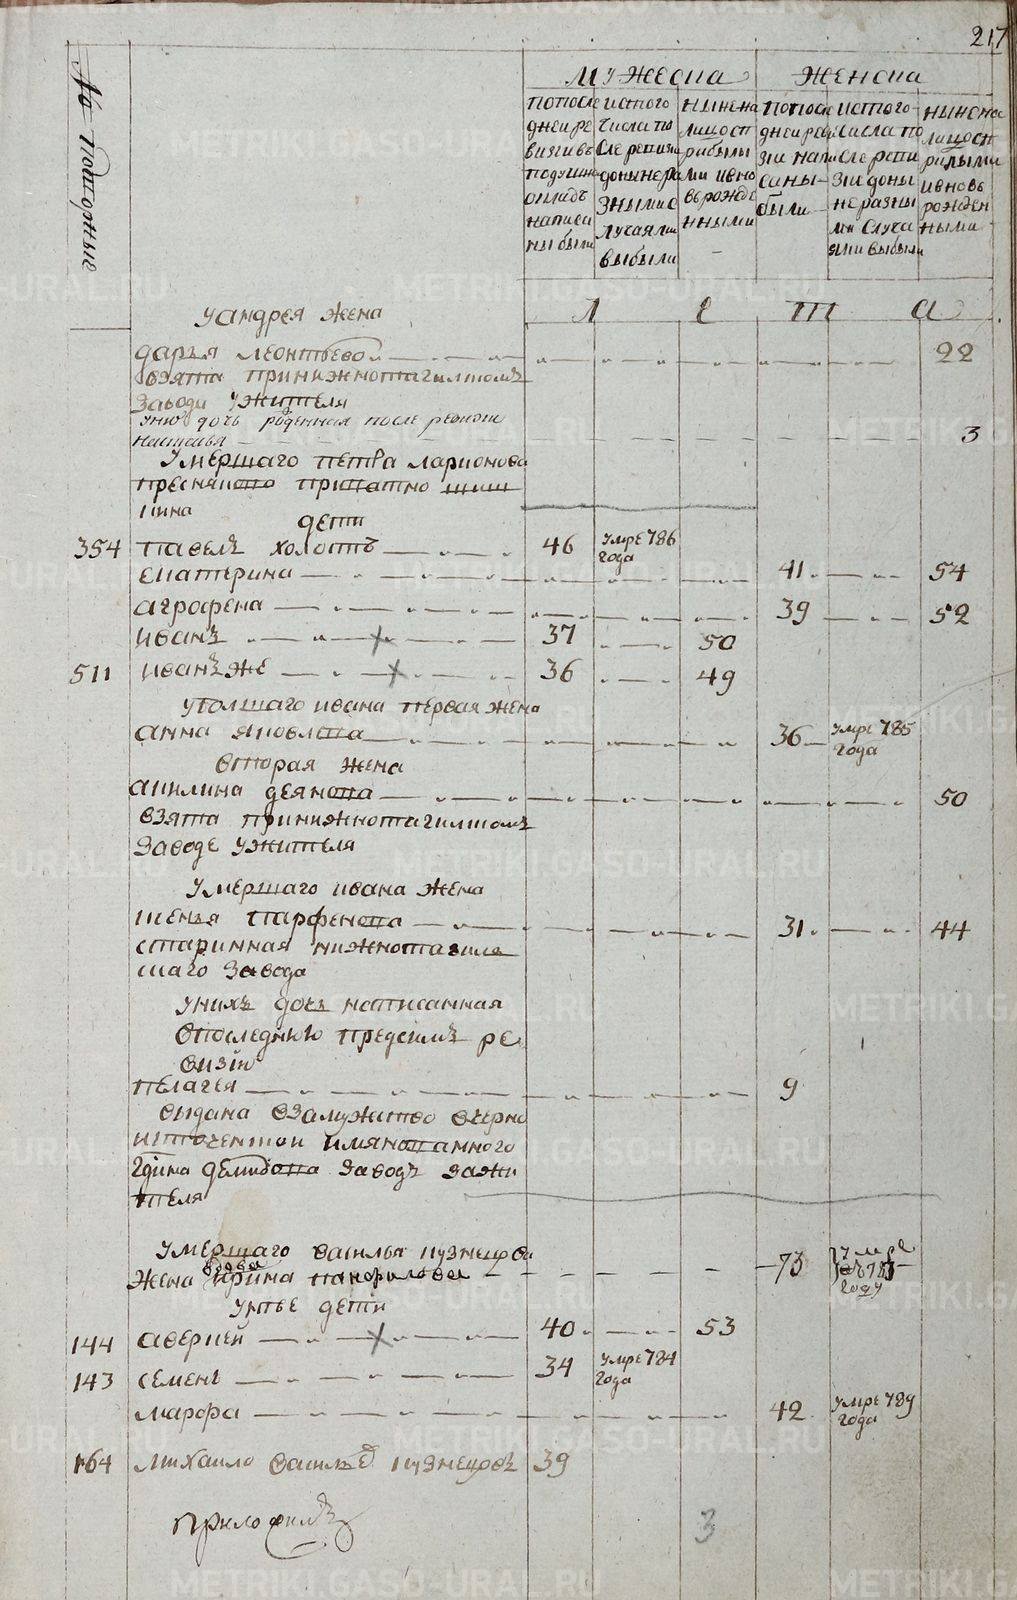 217
мужеска
женска
по после
дней ре
визии въ
написа
ны были
из того
числа по
сле ревизи
лучаями
выбыли
ныне на
лицо с п
рибылы
ми и вно
въ рожде
нными
по после
дней реви
зии напи
саны
были
из того
числа по
сле реви
зии до ны
не разны
ми случа
ями выбыли
ныне на
лицо с п
рибылыми
и вновь
рожден
ными
Л е т а
у андрея жена
дарья леонтьева 22
взята при нижнотагилскомъ
заводе у жителя
у ню дочь рожденная после ревизии
настасья 3
умершаго петра ларионова
дети
354 павелъ холостъ 46 умре 786 года
екатерина 41 54
агрофена 39 52
иванъ 37 50
511 иванъ же 36 49
у большаго ивана первая жена
анна яковлева 36 умре 785 года
вторая жена
акилина 50
взята при нижнотагилскомъ
заводе у жителя
умершаго ивана жена
парфенова 31 44
старинная нижнотагил
скаго завода
у нихъ дочь написанная
в последнюю предсимъ ре
визию
пелагея 9
выдана в замужство в черно
источенской имянованного
гдина демидова заводъ за жи
теля
умершаго василья кузнецова
жена вдова ирина панфилова 73 умре в 783 году
у нее дети
144 аверкей 40 53
143 семенъ 34 умре 784 года
марфа 42 умре 789 года
164 михаило васильев кузнецовъ 39
3